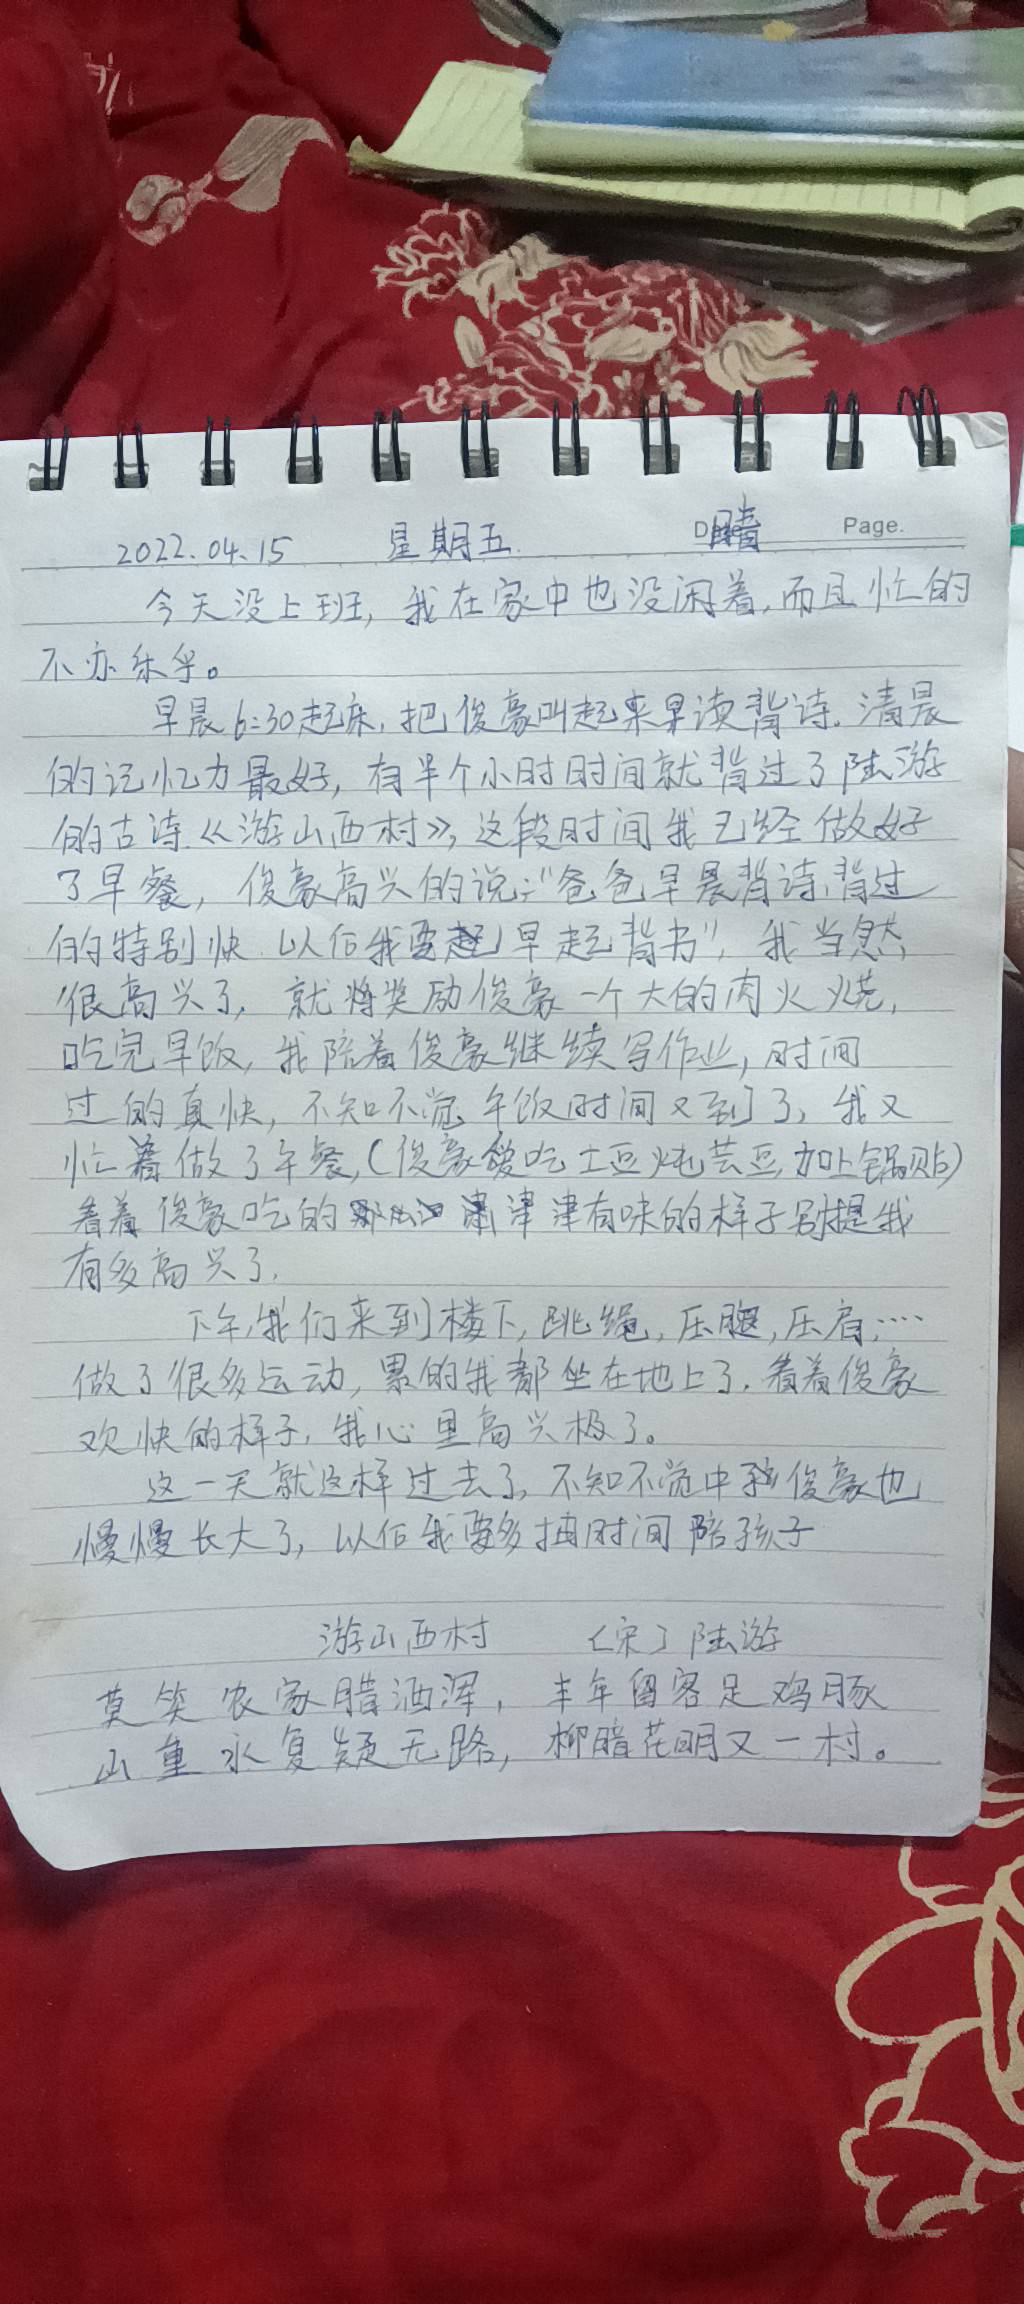 2022.04.15 星期五. 晴 Page.
今天没上班, 我在家中也没闲着, 而且忙的
不亦乐乎。
早晨6:30起床, 把俊豪叫起来早读背诗. 清晨
的记忆力最好, 有半个小时时间就背过了陆游
的古诗《游山西村》, 这段时间我已经做好
了早餐, 俊豪高兴的说:"爸爸早晨背诗, 背过
的特别快. 以后我要早起背书", 我当然
很高兴了, 就将奖励俊豪一个大的肉火烧,
吃完早饭, 我陪着俊豪继续写作业, 时间
过的真快, 不知不觉午饭时间又到了, 我又
忙着做了午餐, (俊豪爱吃土豆炖芸豆, 加上锅贴)
看着俊豪吃的津津有味的样子别提我
有多高兴了.
下午, 我们来到楼下, 跳绳, 压腿, 压肩, ····
做了很多运动, 累的我都坐在地上了. 看着俊豪
欢快的样子, 我心里高兴极了。
这一天就这样过去了, 不知不觉中俊豪也
慢慢长大了, 以后我要多抽时间陪孩子
游山西村 〔宋〕陆游
莫笑农家腊酒浑, 丰年留客足鸡豚
山重水复疑无路, 柳暗花明又一村。